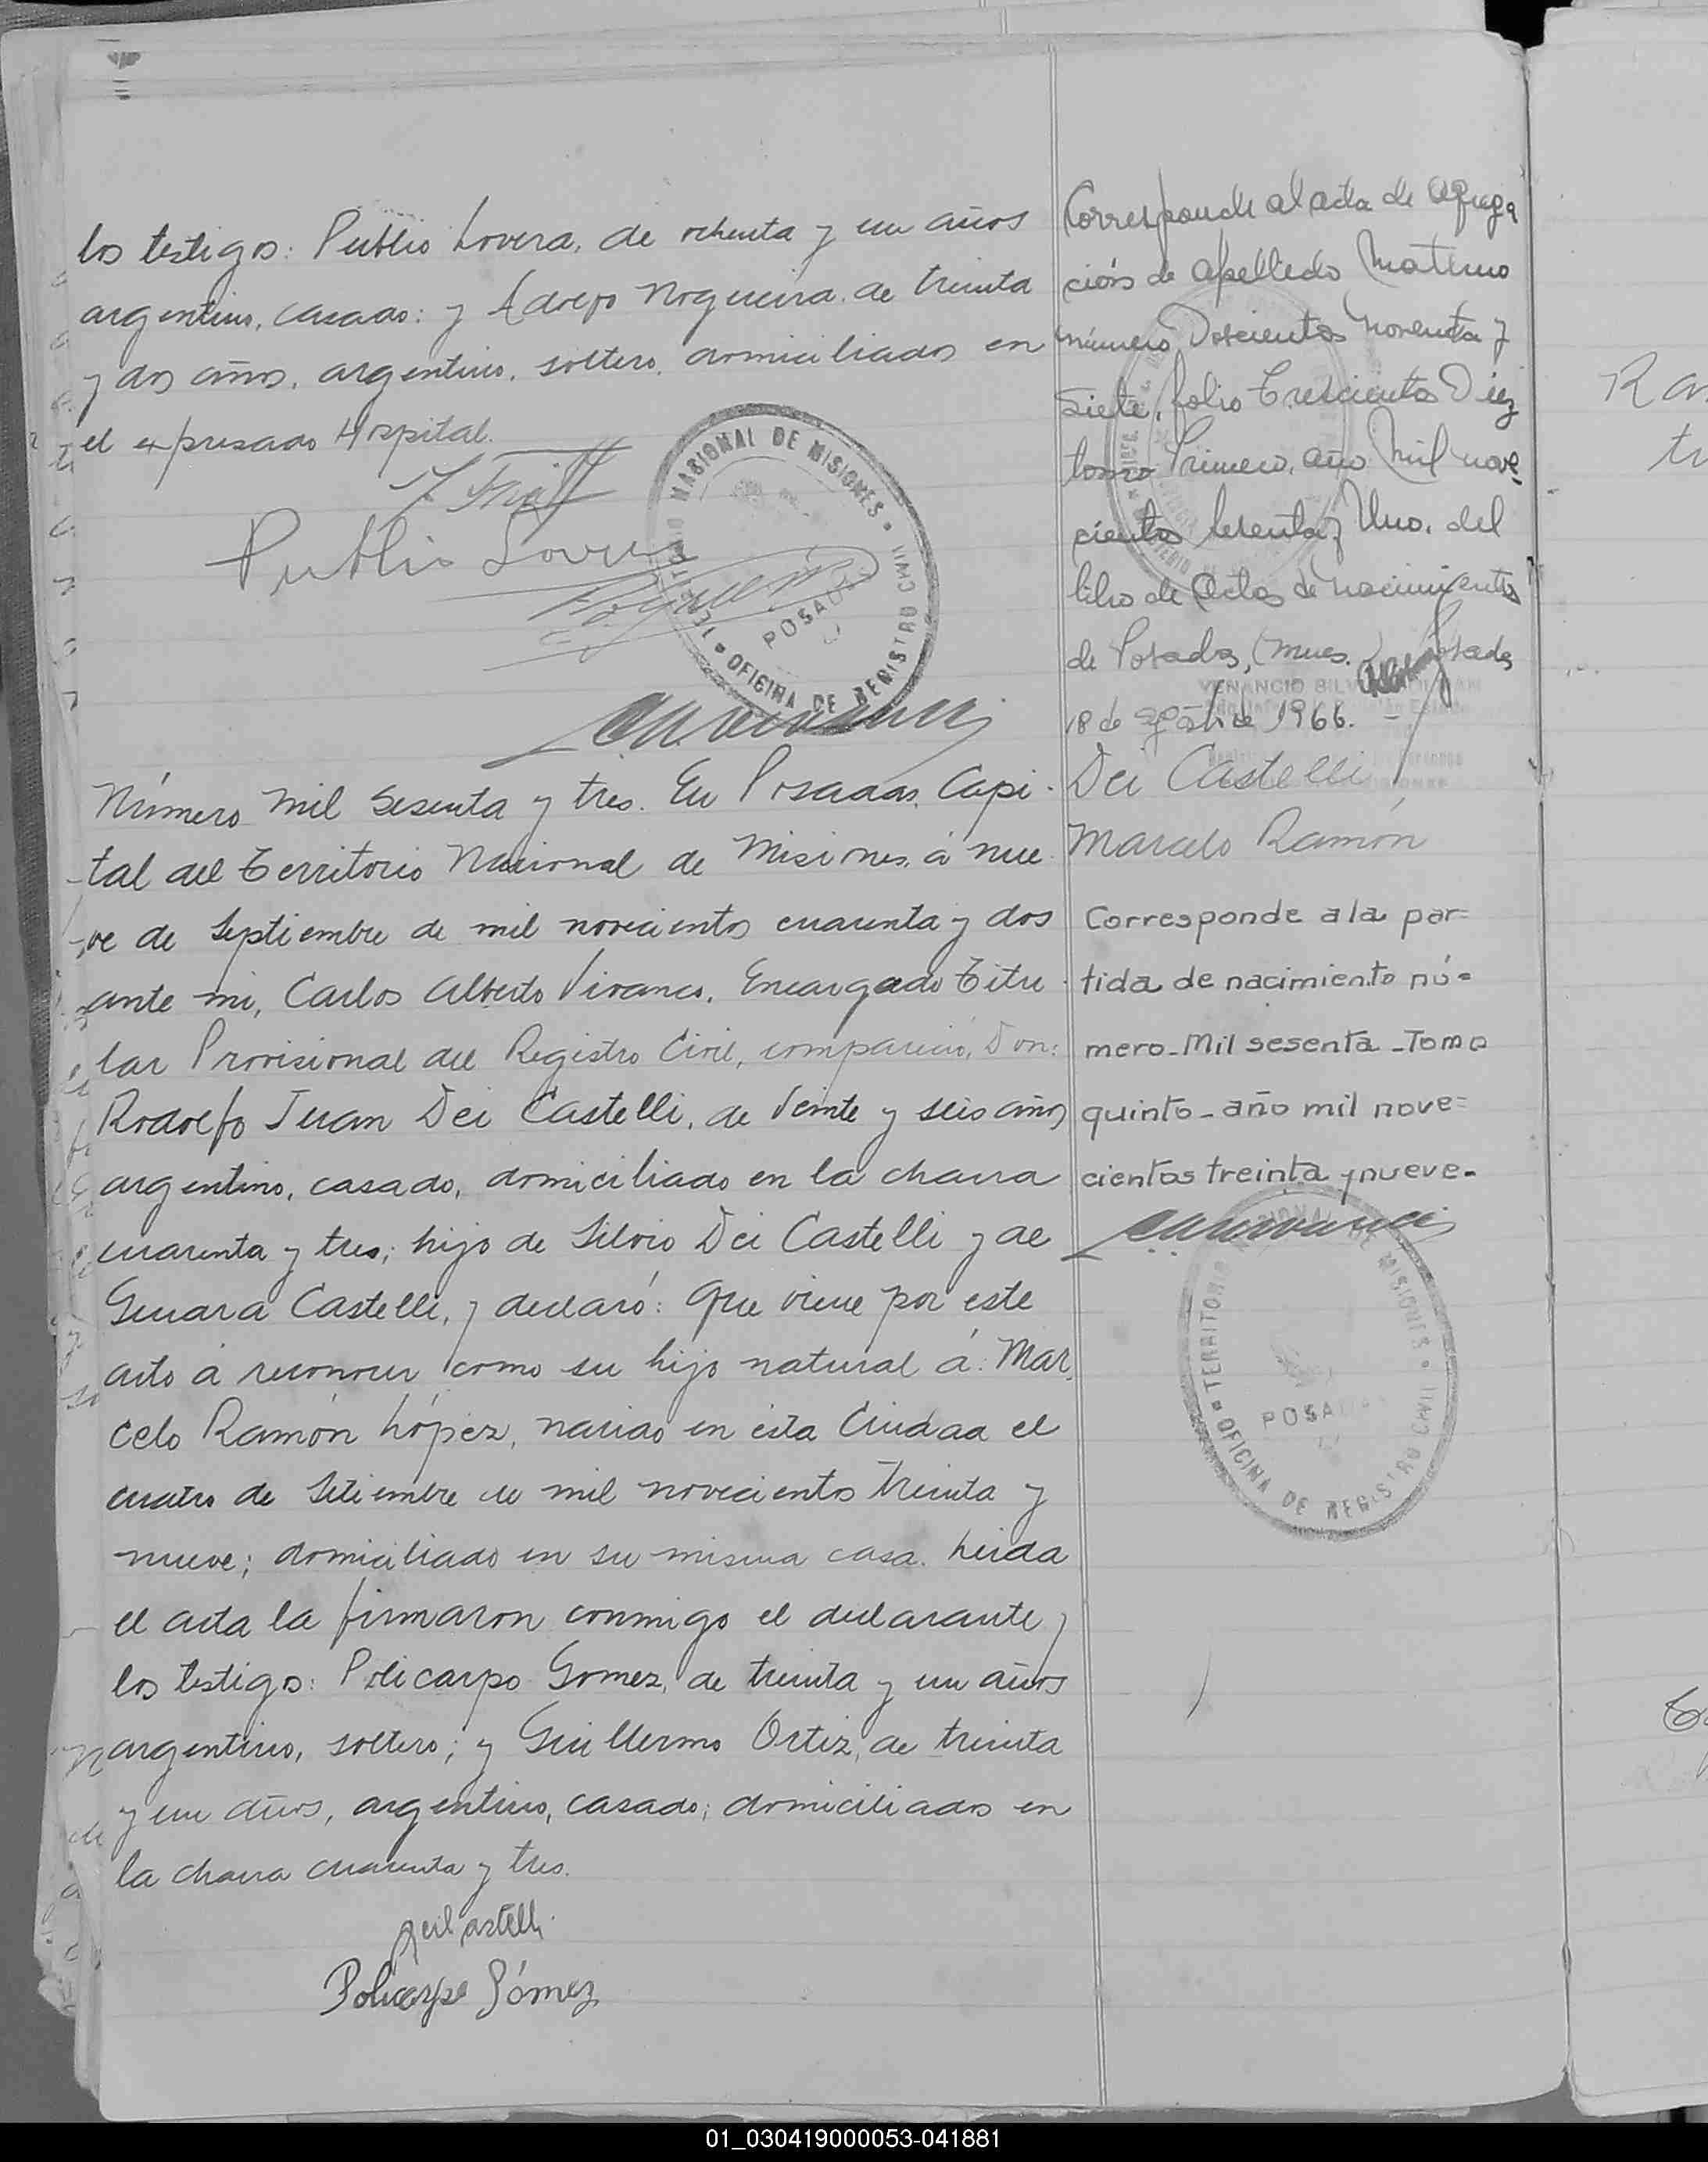 los testigos: Publio Lovera, de ochenta y un años
argentino, casado: y Adolfo Nogueira, de treinta
y dos años, argentino, soltero, domiciliados en
el expresado Hospital.
Publio Lovera
TERRITORIO NASIONAL DE MISIONES
OFICINA DE REGISTRO CIVIL
POSADAS
Número mil sesenta y tres. En Posadas, Capi-
tal del Territorio Nacional de Misiones, á nue-
ve de Septiembre de mil novecientos cuarenta y dos
ante mi, Carlos Alberto Vivanco, Encargado Titu-
lar Provisional del Registro Civil, compareció, Don:
Rodolfo Juan Dei Castelli, de veinte y seis años
argentino, casado, domiciliado en la chacra
cuarenta y tres; hijo de Silvio Dei Castelli y de
Genara Castelli, y declaró: Que viene por este
acto á reconocer como su hijo natural á: Mar-
celo Ramón López, nacido en esta Ciudad el
cuatro de Setiembre de mil novecientos treinta y
nueve; domiciliado en su misma casa. Leida
el acta la firmaron conmigo el declarante y
los testigos: Policarpo Gomez, de treinta y un años
argentino, soltero; y Guillermo Ortiz, de treinta
y un años, argentino, casado; domiciliados en
la chacra cuarenta y tres.
DeiCastelli
Policarpo Gómez
Corresponde al acta de agrega
ción de apellido Materno
número Doscientos noventa y
siete, folio Trescientos Diez
tomo Primero, año Mil nove-
cientos sesenta y Uno, del
libro de Actas de nacimientos
de Posadas, (Mnes.) Posadas
VENANCIO SILV
18 de agosto de 1966.-
Dei Castelli
Marcelo Ramón
Corresponde a la par=
tida de nacimiento nú=
mero-Mil sesenta-Tomo
quinto-año mil nove=
cientos treinta y nueve-
TERRITORIO NASIONAL DE MISIONES
OFICINA DE REGISTRO CIVIL
POSADAS
01_030419000053-041881